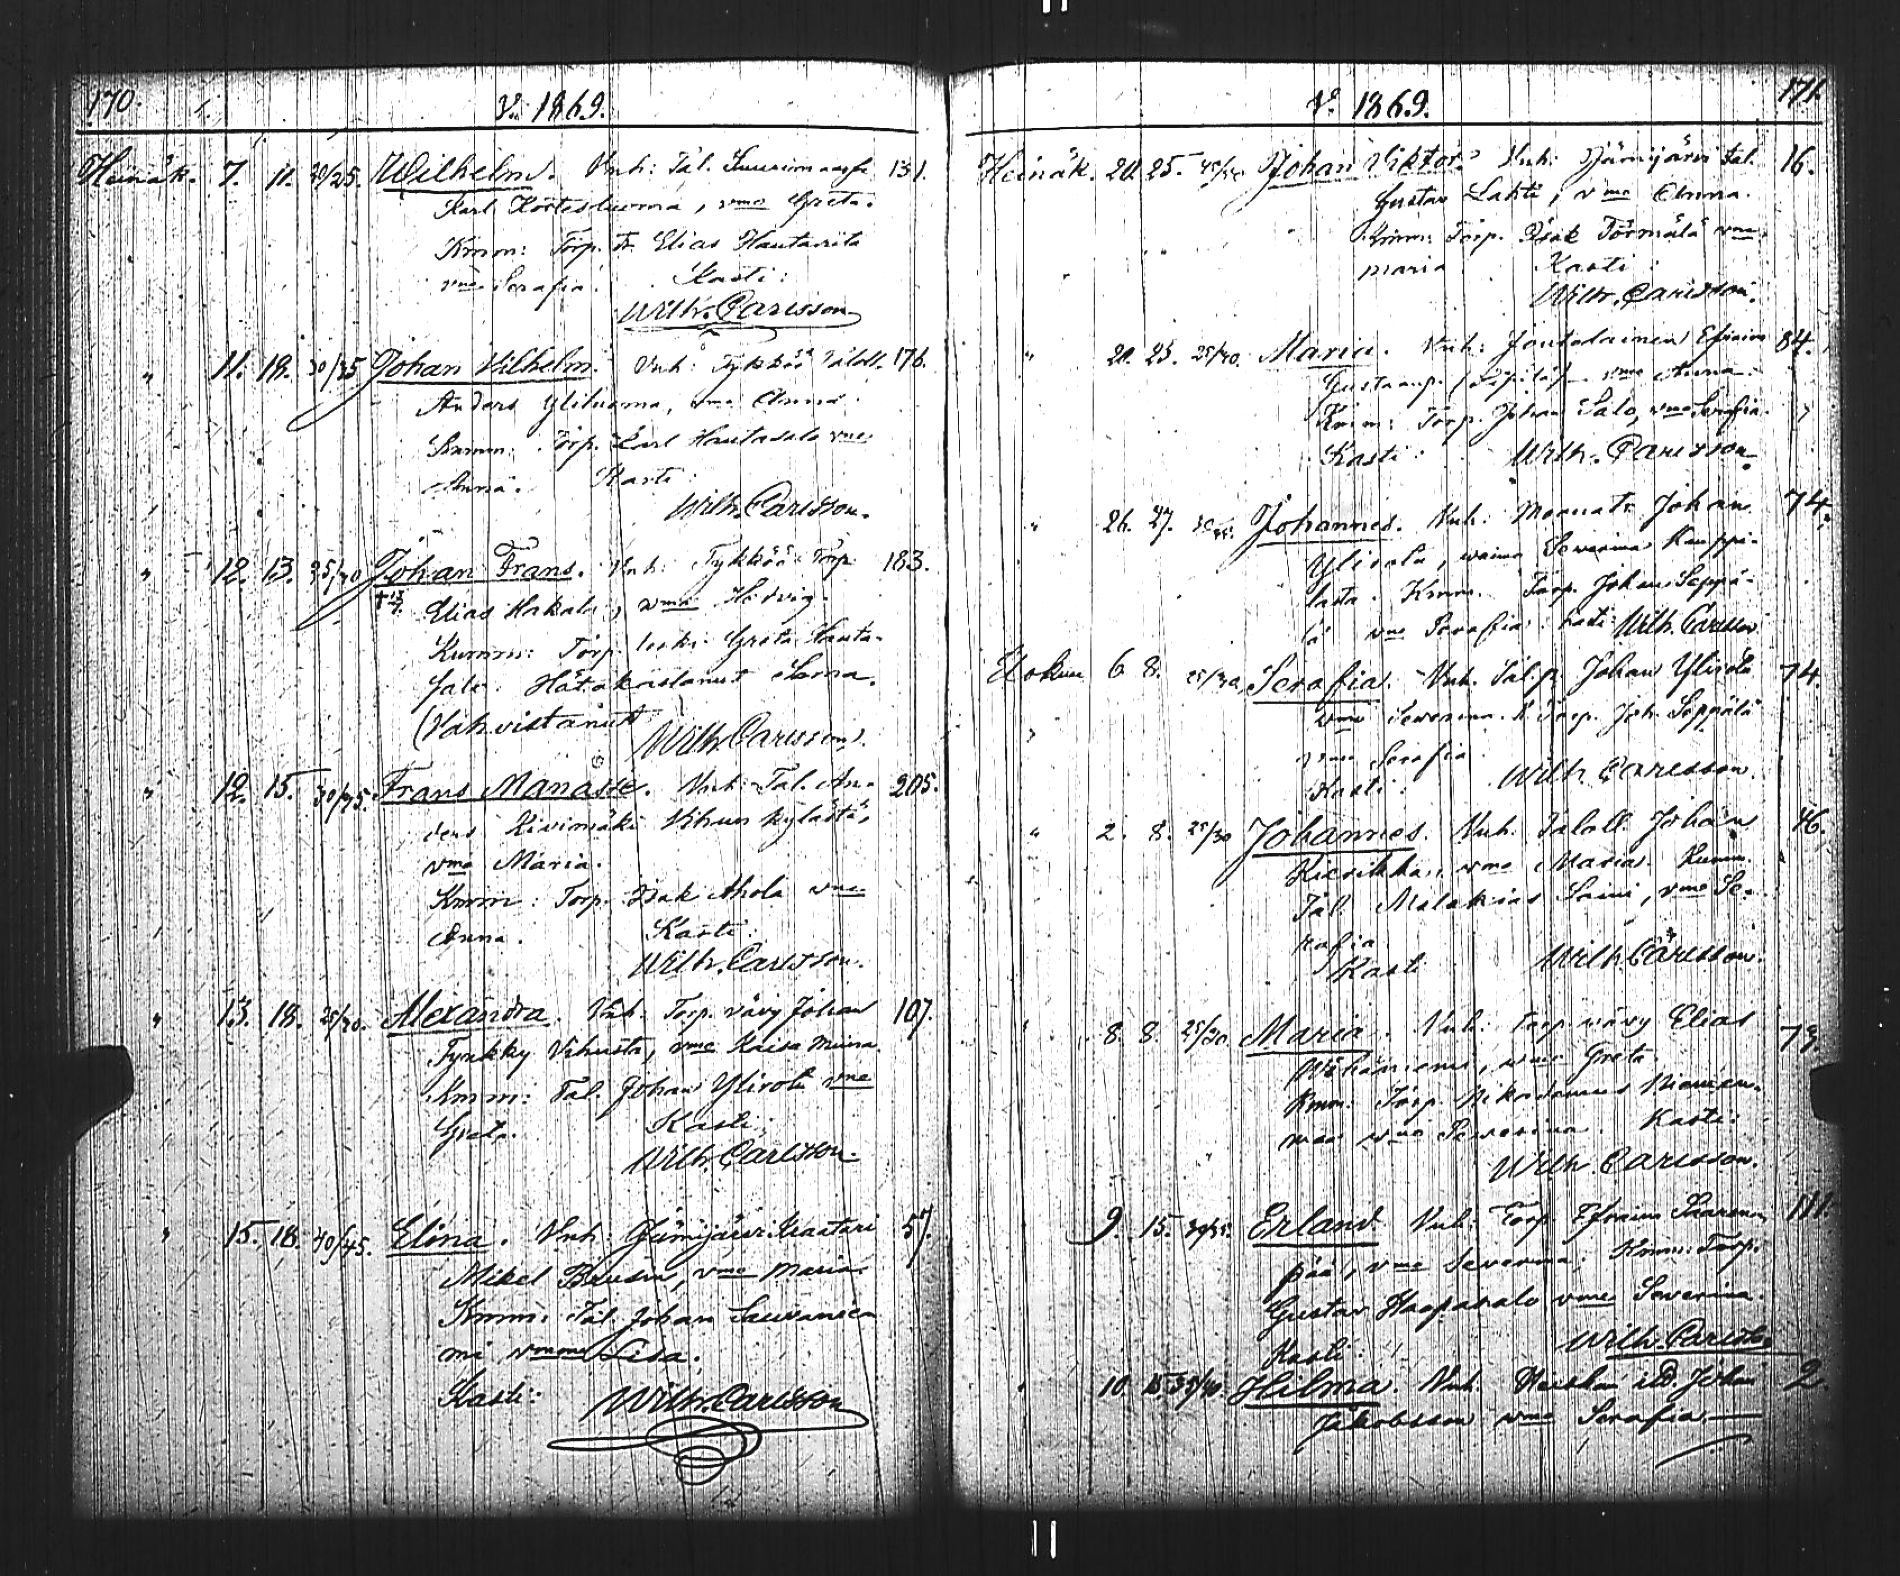 170.
V. 1869.
Heinäk. 7. 11. 20/25. Wilhelm. Vnh: Tal. 131.
Karl Kortesluoma, vmo Greta.
Kmm: Torp. Elias Hautaviita
vmo Serafia. Kasti:
Wilh. Carlsson
" 11. 18. 30/35 Johan Vilhelm. Vnh: Tykköö Taloll. 176.
Anders Yliluoma, vmo Anna.
Kumm: Torp. Karl Hautasalo vmo
Anna. Kasti:
Wilh. Carlsson.
" 12. 13. 35/40 Johan Frans. Vnh: Tykköö Torp. 183.
Elias Hakala, vmo Hedvig.
Kummi: Torp. leski Greta Hauta-
salo. Hätäkastanut Sama.
(Vahvistanut Wilh. Carlsson).
" 12. 15. 30/35. Frans Manasse. Vnh: Tal. An- 205.
ders Kivimäki Vihun kylästä,
vmo Maria.
Kmmi: Torp. Isak Ahola vmo
Anna. Kasti:
Wilh. Carlsson.
" 13. 18. 25/30. Alexandra. Vnh. Torp. vävy Johan 107.
Tynkky Vihusta, vmo Kaisa Miina.
Kmmi: Tal. Johan Ylirotu vmo
Greta. Kasti:
Wilh. Carlsson
" 15. 18. 40/45. Elina. Vnh: Jämijärvi: Kraatari 57.
Mikel Brusin, vmo Maria.
Kmmi: Tal. Johan Suuranie-
mi vmo Lisa.
Kasti: Wilh. Carlsson
V. 1869. 171
Heinäk. 20. 25. Johan Viktor. Vnh: Jämijärvi tal. 16.
Gustav Lahti, vmo Anna.
Kmm: Torp. Isak Törmälä vmo
Maria. Kasti:
Wilh. Carlsson.
" 20. 25. 25/30. Maria. Vnh: Efraim 84.
vmo Anna.
Kmm: Torp. Johan Salo, vmo Serafia.
Kasti: Wilh. Carlsson.
" 26. 27. Johannes. Vnh: Johan 74.
vaimo Severina Kauppi-
lasta. Kmm. Torp. Johan Seppä-
lä vmo Serafia. Kasti: Wilh. Carlsson
Elokuu 6 8. 25/30. Serafia. Vnh. Tal. p. Johan 74.
vmo Severina. K. Torp. Joh. Seppälä
vmo Serafia
Kasti: Wilh. Carlsson.
" 2. 8. 25/30 Johannes. Vnh. Taloll. Johan 46.
Kierikka, vmo Maria. Kumm.
Tal. Malakias Sami, vmo Se-
rafia
Kasti Wilh. Carlsson.
8. 8. 25/30. Maria. Vnh: Torp. vävy Elias 73.
Vähäniemi, vmo Greta.
Kmm: Torp. Nikodemus Niemen-
maa vmo Severina. Kasti:
Wilh Carlsson.
9. 15. Erland. Vnh: Torp. Efraim Saaren- 111.
pää, vmo Severina; Kmm: Torp.
Gustav Haapasalo vmo Severina.
Kasti: Wilh. Carlsson
10. 15. 35/40. Hilma. Vnh. Johan 2.
Jakobsson vmo Serafia.